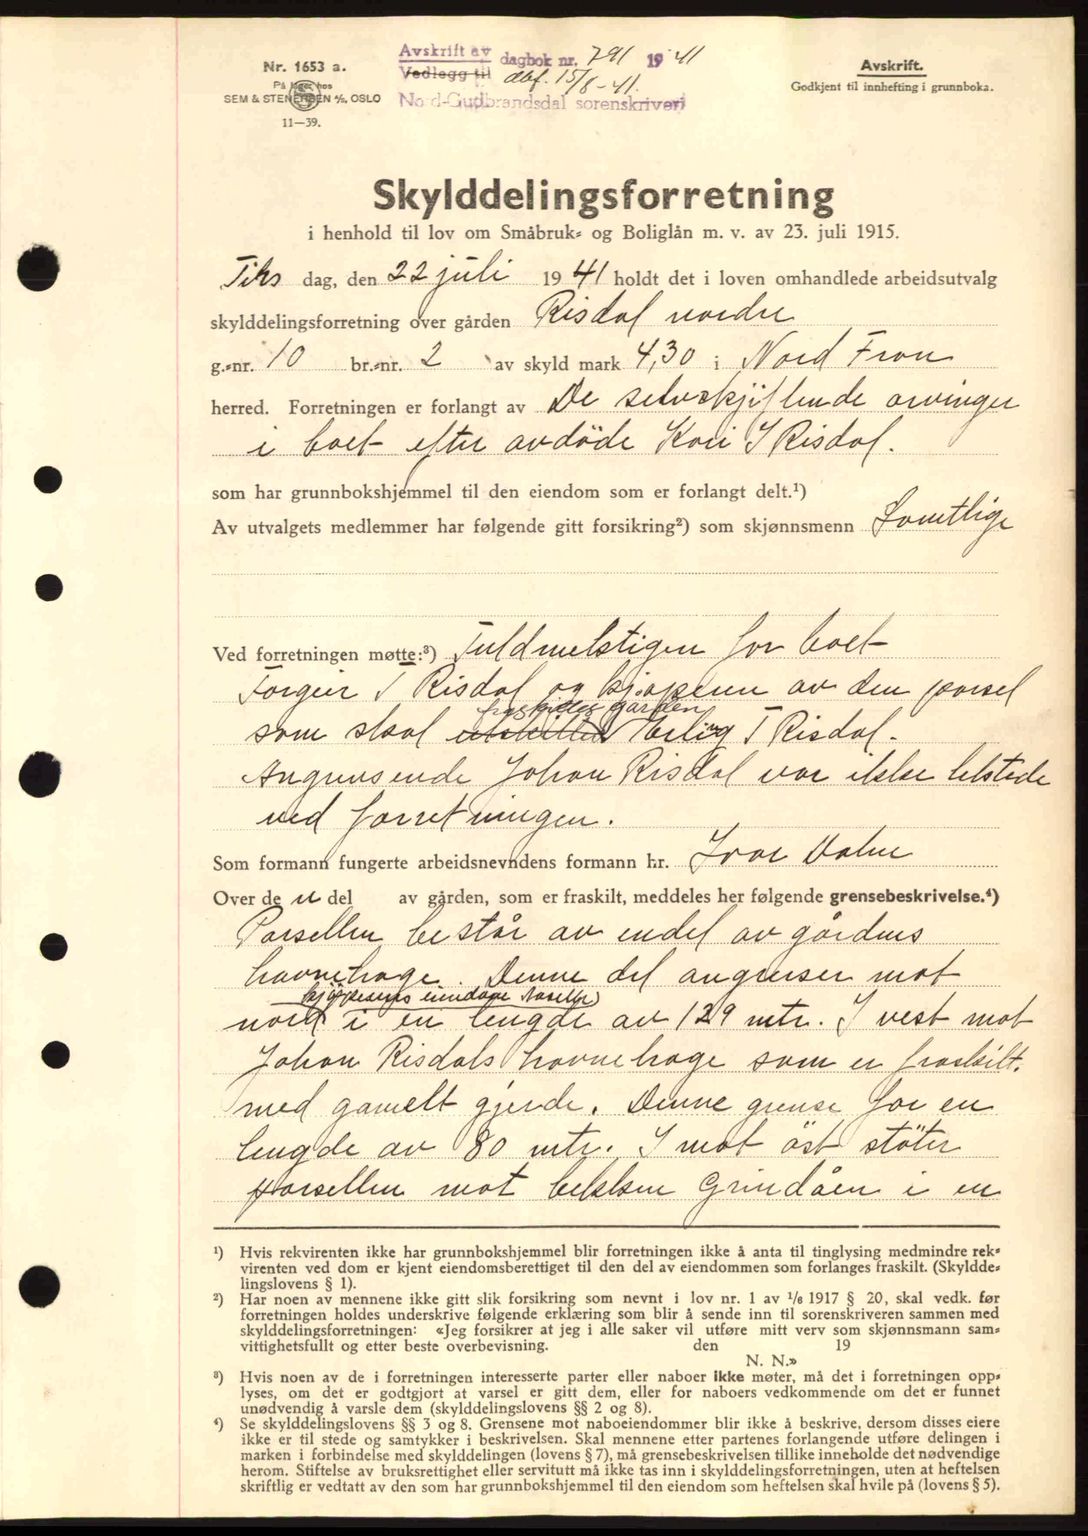 Nr. 1653 a.
På lager hos
SEM & STENERSEN A/S, OSLO
11—39.
Avskrift av dagbok nr. 791 1941
Vedlegg til dbf. 15/8-41.
Nord-Gudbrandsdal sorenskriveri
Avskrift.
Godkjent til innhefting i grunnboka.
Skylddelingsforretning
i henhold til lov om Småbruk- og Boliglån m. v. av 23. juli 1915.
Tirs dag, den 22 juli 1941 holdt det i loven omhandlede arbeidsutvalg
skylddelingsforretning over gården Risdal nordre
g.-nr. 10 br.-nr. 2 av skyld mark 4,30 i Nord Fron
herred. Forretningen er forlangt av De selvskiftende arvinger
i boet efter avdöde Kari I Risdal.
som har grunnbokshjemmel til den eiendom som er forlangt delt.¹)
Av utvalgets medlemmer har følgende gitt forsikring²) som skjønnsmenn Samtlige
Ved forretningen møtte:³) Fuldmektigen for boet
Torgeir T Risdal og kjøperen av den parsel
fraskilles gården
som skal utskilles Erling T Risdal.
Angrensende Johan Risdal var ikke tilstede
ved forretningen.
Som formann fungerte arbeidsnevndens formann hr. Ivar Dalen
Over de n del av gården, som er fraskilt, meddeles her følgende grensebeskrivelse.⁴)
Parsellen består av endel av gårdens
havnehage. Denne del angrenser mot
kjøperens eiendom
nord i en lengde av 129 mtr. I vest mot
Johan Risdals havnehage som er fraskilt.
med gamelt gjerde. Denne grense har en
lengde av 80 mtr. I mot öst stöter
parsellen mot bekken Grindåen i en
¹) Hvis rekvirenten ikke har grunnbokshjemmel blir forretningen ikke å anta til tinglysing medmindre rek-
virenten ved dom er kjent eiendomsberettiget til den del av eiendommen som forlanges fraskilt. (Skyldde-
lingslovens § 1).
²) Har noen av mennene ikke gitt slik forsikring som nevnt i lov nr. 1 av 1/6 1917 § 20, skal vedk. før
forretningen holdes underskrive følgende erklæring som blir å sende inn til sorenskriveren sammen med
skylddelingsforretningen: «Jeg forsikrer at jeg i alle saker vil utføre mitt verv som skjønnsmann sam-
vittighetsfullt og etter beste overbevisning. den 19
N. N.»
³) Hvis noen av de i forretningen interesserte parter eller naboer ikke møter, må det i forretningen opp-
lyses, om det er godtgjort at varsel er gitt dem, eller for naboers vedkommende om det er funnet
unødvendig å varsle dem (skylddelingslovens §§ 2 og 8).
⁴) Se skylddelingslovens §§ 3 og 8. Grensene mot naboeiendommer blir ikke å beskrive, dersom disses eiere
ikke er til stede og samtykker i beskrivelsen. Skal mennene etter partenes forlangende utføre delingen i
marken i forbindelse med skylddelingen (lovens § 7), må grensebeskrivelsen tillike inneholde det nødvendige
herom. Stiftelse av bruksrettighet eller servitutt må ikke tas inn i skylddelingsforretningen, uten at heftelsen
skriftlig er vedtatt av den som har grunnbokshjemmel til den eiendom som heftelsen skal hvile på (lovens § 5).